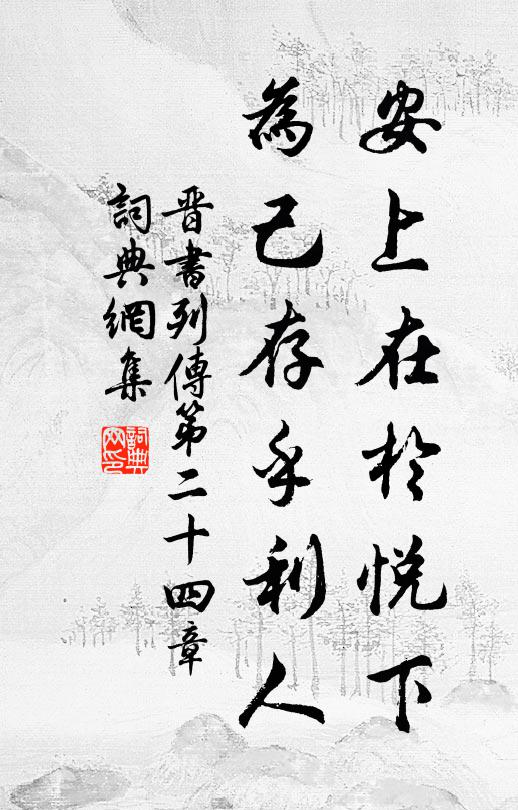 安上在於悦下
為己存乎利人
晋書列傳第二十四章
詞典網集
詞典
网印